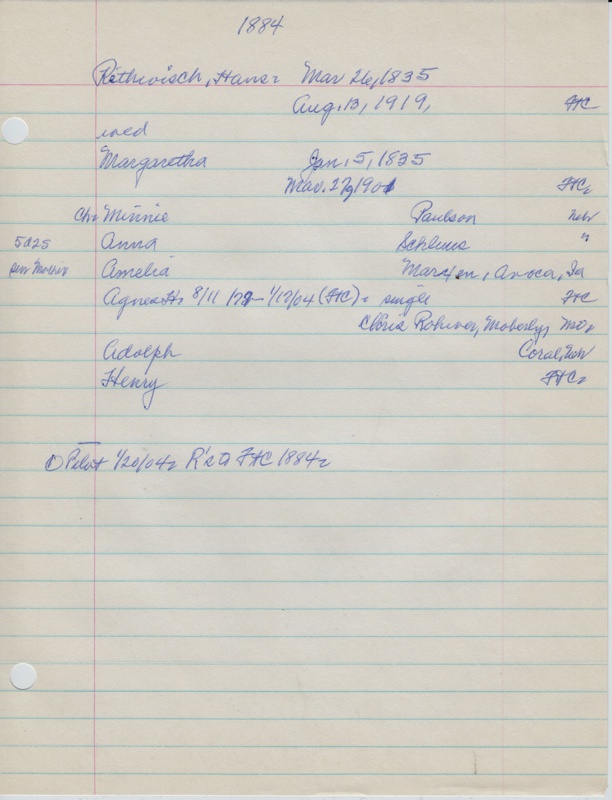 1884
Rethwisch, Hans: Mar 26, 1835
Aug. 13, 1919, FtC
wed
Margaretha Jan. 5, 1835
Mar. 27, 1901 FtC.
Ch: Minnie Paulson Neb
5 d 25 Anna Schlens "
Amelia Marxen, Avoca, Ia
Agnes H. 8/11/78 - 1/12/04 (FtC) = single FtC
Chris Rohwer, Moberly, Mo.
Adolph Coral, Neb
Henry FtC.
① Pilot 1/20/04. R's to FtC 1884.